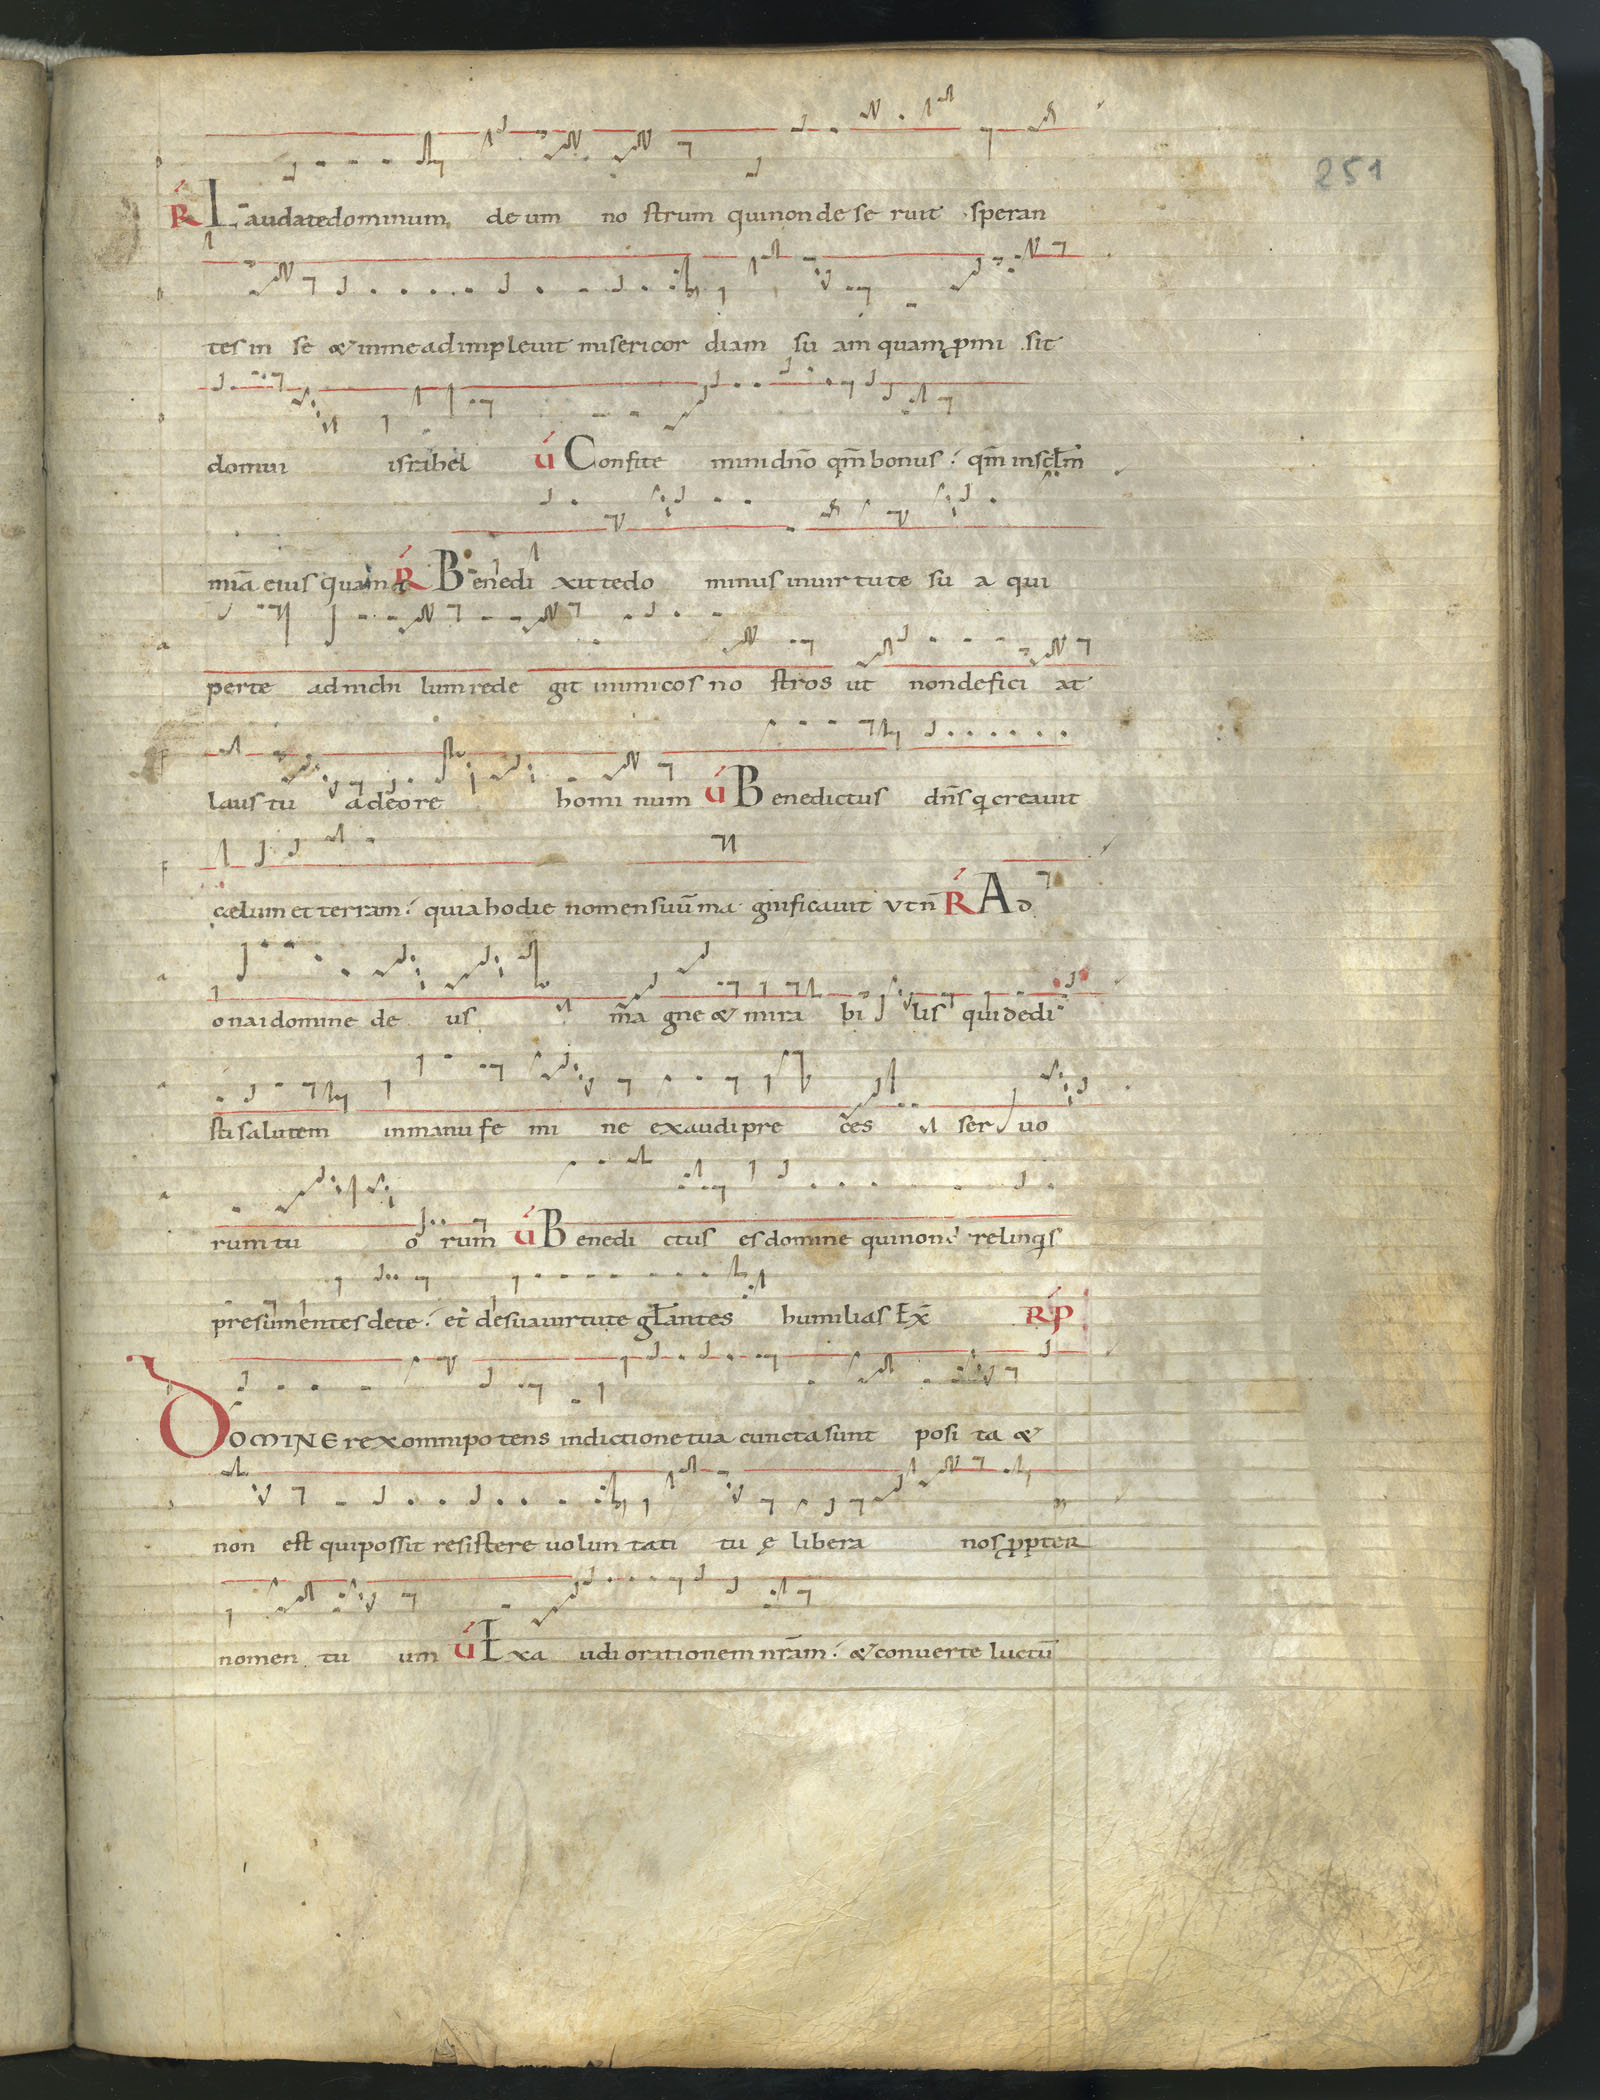 251
R Laudate dominum deum nostrum qui non deseruit speran
tes in se & in me adimplevit misericordiam suam quam ꝓmisit
domui israhel V Confitemini dn̄o qm̄ bonus: qm̄ in sclm̄
mīa eius quam R Benedixit te dominus in uirtute sua qui
per te ad nichilum redegit inimicos nostros ut non deficiat
laus tua de ore hominum V Benedictus dn̄s qi creauit
cælum et terram: quia hodie nomen suū magnificauit vt n̄ R Ad
onai domine deus magne & mirabilis qui dedi
sti salutem in manu femine exaudi preces seruo
rum tuorum V Benedictus es domine qui non relinqis
presumentes de te: et de sua uirtute gl̄antes humilias Ex̄ RP
DOMINE rex omnipotens in dictione tua cuncta sunt posita &
non est qui possit resistere uoluntati tuę libera nos ꝓpter
nomen tuum V Exaudi orationem nrām: & conuerte luctū